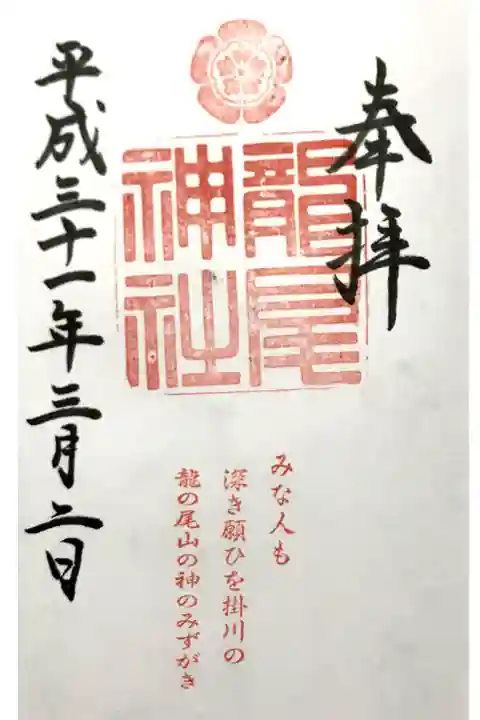 奉拝
龍尾
神社
みな人も
深き願ひを掛川の
龍の尾山の神のみずがき
平成三十一年三月二日